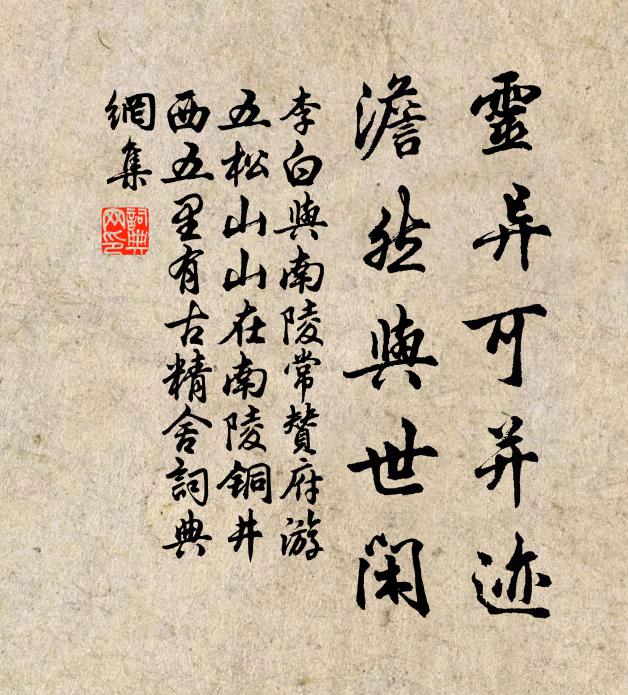 靈异可并迹
澹然與世闲
李白與南陵常贊府游
五松山山在南陵銅井
西五里有古精舍詞典
網集
詞典
网印